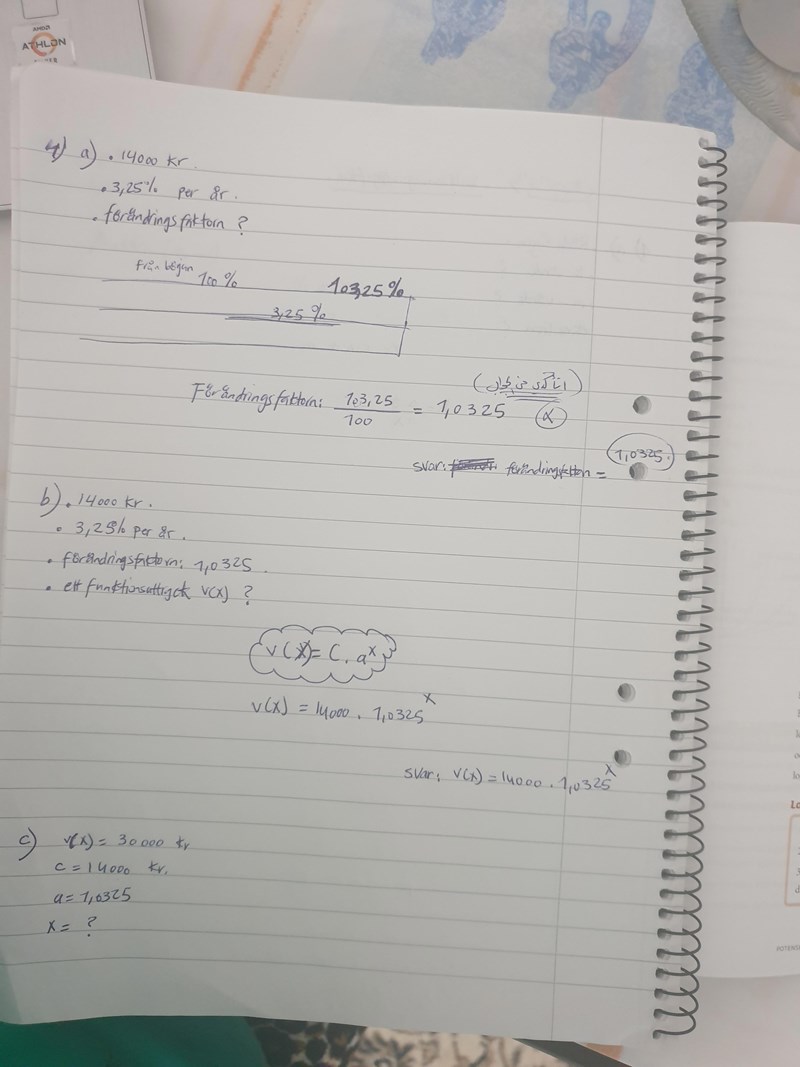 AMD
ATHLON
4) a) • 14000 kr.
• 3,25% per år.
• förändringsfaktorn ?
från början
100% 103,25%
3,25%
Förändringsfaktorn: 103,25/100 = 1,0325 α
svar: förändringsfaktorn = 1,0325
b) • 14000 kr.
• 3,25% per år.
• förändringsfaktorn: 1,0325.
• ett funktionsuttryck V(x) ?
V(x) = C . a^x
V(x) = 14000 . 1,0325^x
svar: V(x) = 14000 . 1,0325^x
c) V(x) = 30000 kr
C = 14000 kr.
a = 1,0325
x = ?
POTENS